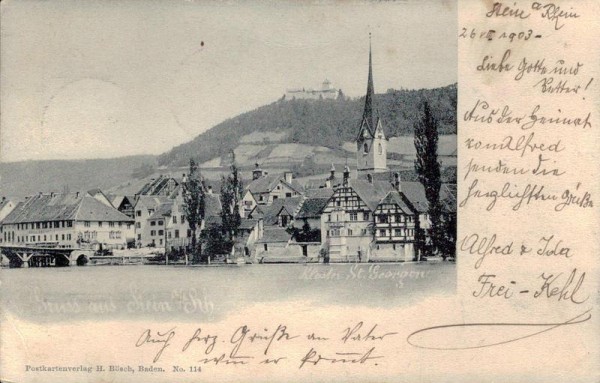 Stein a Rhein
26 VII 1903 -
Liebe Gotte und
Vetter!
Aus der Heimat
von Alfred
senden die
herzlichsten Grüße
Alfred & Ida
Frei-Kehl
Kloster St. Georgen
Gruss aus Stein a/Rh.
Auch herz. Grüße an Vater
wenn er kommt.
Postkartenverlag H. Bösch, Baden. No. 114